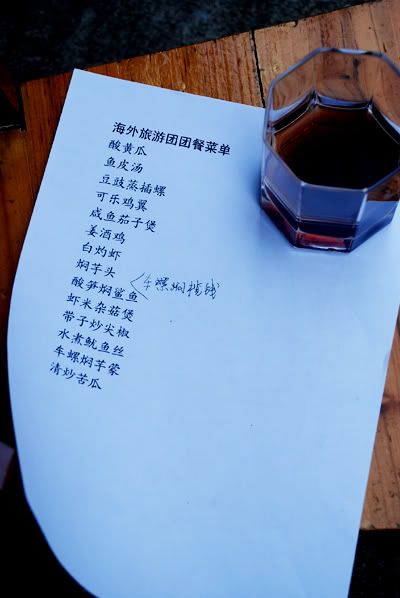 海外旅游团团餐菜单
酸黄瓜
鱼皮汤
豆豉蒸插螺
可乐鸡翼
咸鱼茄子煲
姜酒鸡
白灼虾
焖芋头
酸笋焖鲨鱼
车螺焖
虾米杂菇煲
带子炒尖椒
水煮鱿鱼丝
车螺焖芋蒙
清炒苦瓜